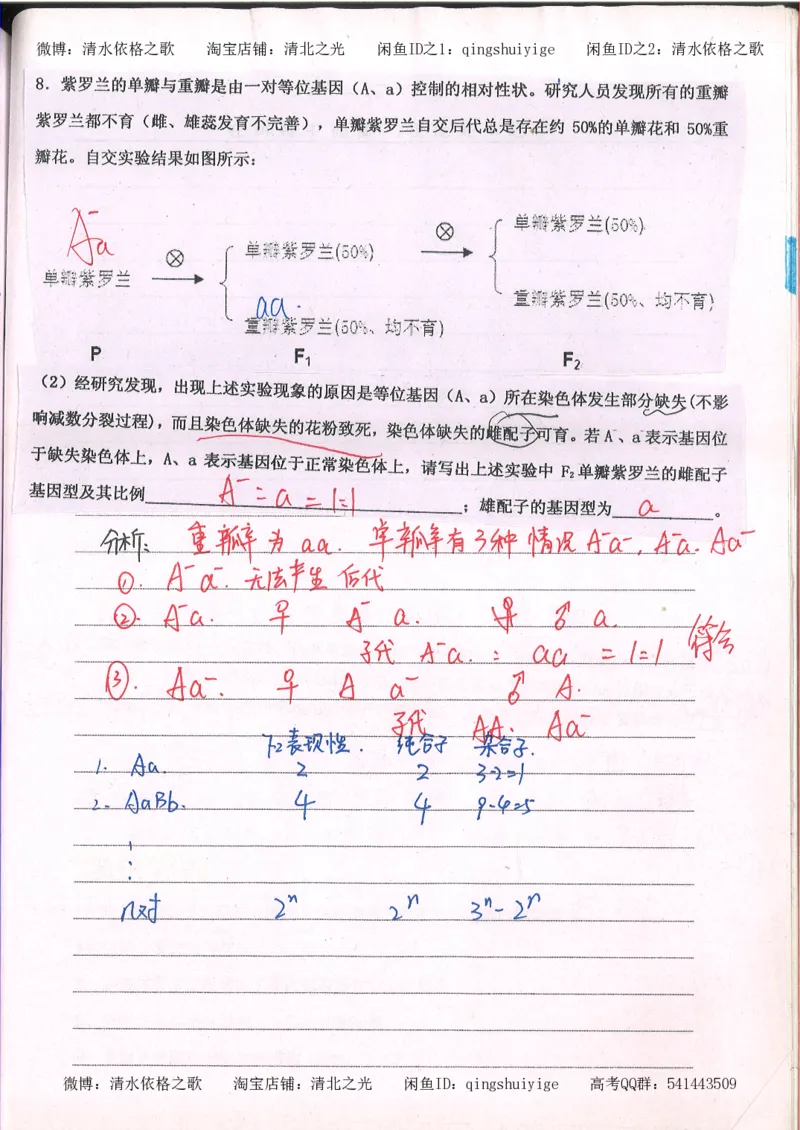 微博：清水依格之歌 淘宝店铺：清北之光 闲鱼ID之1：qingshuiyige 闲鱼ID之2：清水依格之歌
8．紫罗兰的单瓣与重瓣是由一对等位基因（A、a）控制的相对性状。研究人员发现所有的重瓣
紫罗兰都不育（雌、雄蕊发育不完善），单瓣紫罗兰自交后代总是存在约 50%的单瓣花和 50%重
瓣花。自交实验结果如图所示：
A⁻a
单瓣紫罗兰(50%)
⊗
⊗
单瓣紫罗兰(50%)
单瓣紫罗兰
aa.
重瓣紫罗兰(50%、均不育)
重瓣紫罗兰(50%、均不育)
P F₁ F₂
（2）经研究发现，出现上述实验现象的原因是等位基因（A、a）所在染色体发生部分缺失(不影
响减数分裂过程)，而且染色体缺失的花粉致死，染色体缺失的雌配子可育。若 A⁻、a⁻表示基因位
于缺失染色体上，A、a 表示基因位于正常染色体上，请写出上述实验中 F₂ 单瓣紫罗兰的雌配子
基因型及其比例 A⁻:a=1:1 ；雄配子的基因型为 a 。
分析: 重瓣为 aa. 单瓣有3种情况 A⁻a⁻, A⁻a. Aa⁻
①. A⁻a⁻. 无法产生后代
②. A⁻a. ♀ A⁻ a. ♂ a.
子代 A⁻a. : aa = 1:1 符合
③. Aa⁻. ♀ A a⁻ ♂ A.
子代 AA. Aa⁻
F2表现性. 纯合子 杂合子.
1. Aa. 2 2 3-2=1
2. AaBb. 4 4 9-4=5
⋮
n对 2ⁿ 2ⁿ 3ⁿ-2ⁿ
微博：清水依格之歌 淘宝店铺：清北之光 闲鱼ID：qingshuiyige 高考QQ群：541443509